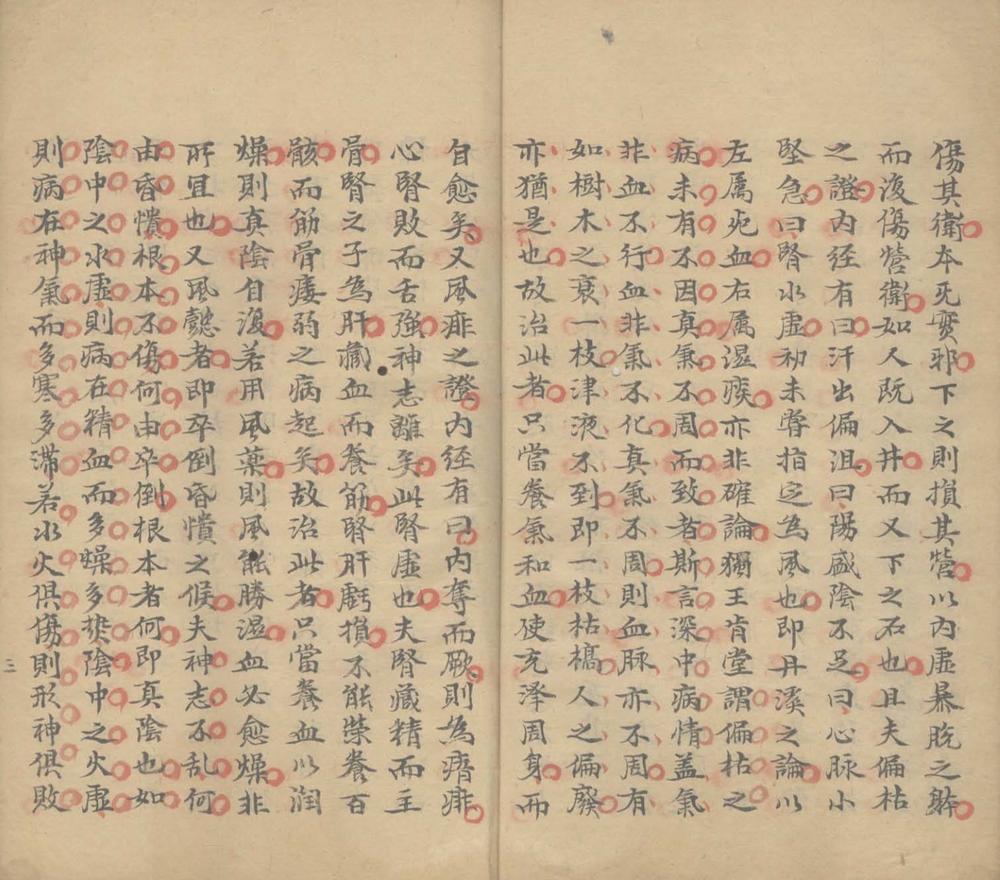 傷其衛本无實邪下之則損其營以內虛暴脫之躰
而復傷營衛如人既入井而又下之石也且夫偏枯
之證內經有曰汗出偏沮曰陽盛陰不足曰心脉小
堅急曰腎水虛初未嘗指定為風也即丹溪之論以
左属死血右属濕痰亦非確論獨王肯堂謂偏枯之
病未有不因真氣不周而致者斯言深中病情盖氣
非血不行血非氣不化真氣不周則血脉亦不周有
如樹木之衰一枝津液不到即一枝枯槁人之偏廢
亦猶是也故治此者只當養氣和血使充澤周身而
自愈矣又風痱之證內经有曰內奪而厥則為瘖痱
心腎敗而舌強神志離矣此腎虛也夫腎藏精而主
骨腎之子為肝藏血而養筋腎肝虧損不能榮養百
骸而筋骨痿弱之病起矣故治此者只當養血以潤
燥則真陰自復若用風藥則風能勝濕血必愈燥非
所宜也又風懿者即卒倒昏憒之候夫神志不乱何
由昏憒根本不傷何由卒倒根本者何即真陰也如
陰中之水虛則病在精血而多燥多熱陰中之火虛
則病在神氣而多寒多滯若水火俱傷則形神俱敗
三